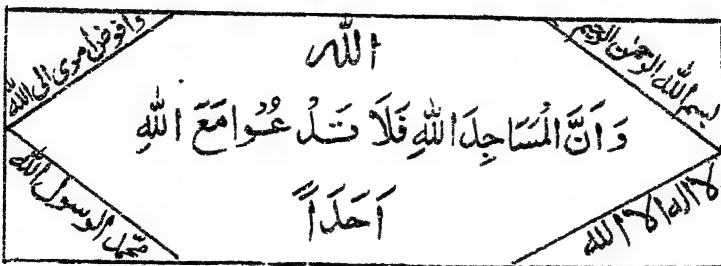 بسم الله الرحمن الرحيم
وافوض امرى الى الله
الله
وَاَنَّ الْمَسَاجِدَ اللهِ فَلَا تَدْعُوا مَعَ اللهِ
اَحَدَاً
لا اله الا الله
محمد الرسول الله